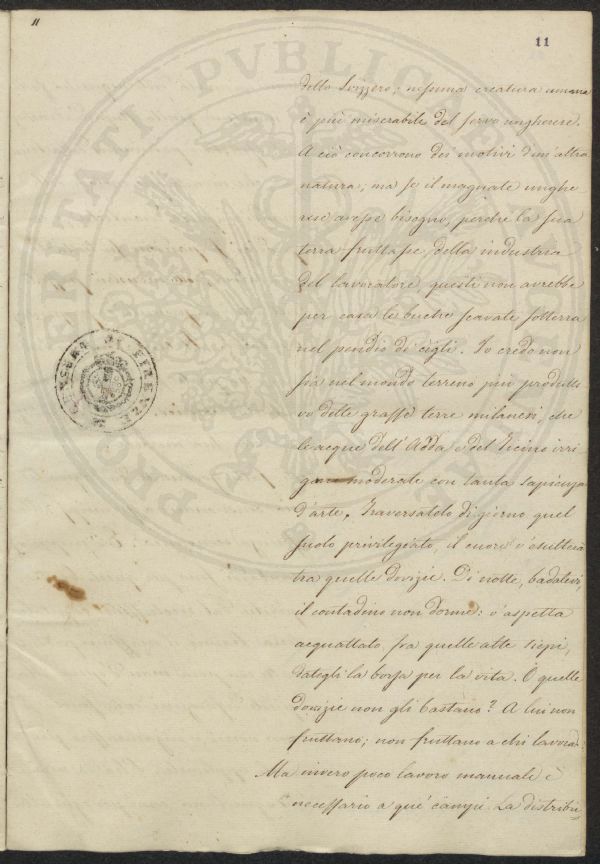 11
11
dello Svizzero; nessuna creatura umana
è più miserabile del servo ungherese.
A ciò concorrono dei motivi d'un'altra
natura; ma se il magnate unghe
rese avesse bisogno, perchè la sua
terra fruttasse, della industria
del lavoratore, questi non avrebbe
per casa le buche scavate sotterra
nel pendio di cigli. Io credo non
sia nel mondo terreno più produtti
vo delle grasse terre milanesi, che
le acque dell'Adda e del Ticino irri
gano moderate con tanta sapienza
d'arte. Traversatolo di giorno quel
suolo privilegiato, il cuore v'esulterà
tra quelle dovizie. Di notte, badatevi,
il contadino non dorme: v'aspetta
acquattato, fra quelle alte siepi,
dategli la borsa per la vita. O quelle
dovizie non gli bastano? A lui non
fruttano; non fruttano a chi lavora.
Ma invero poco lavoro manuale è
necessario a que' campi. La distribu-
CENSURA DI FIRENZE